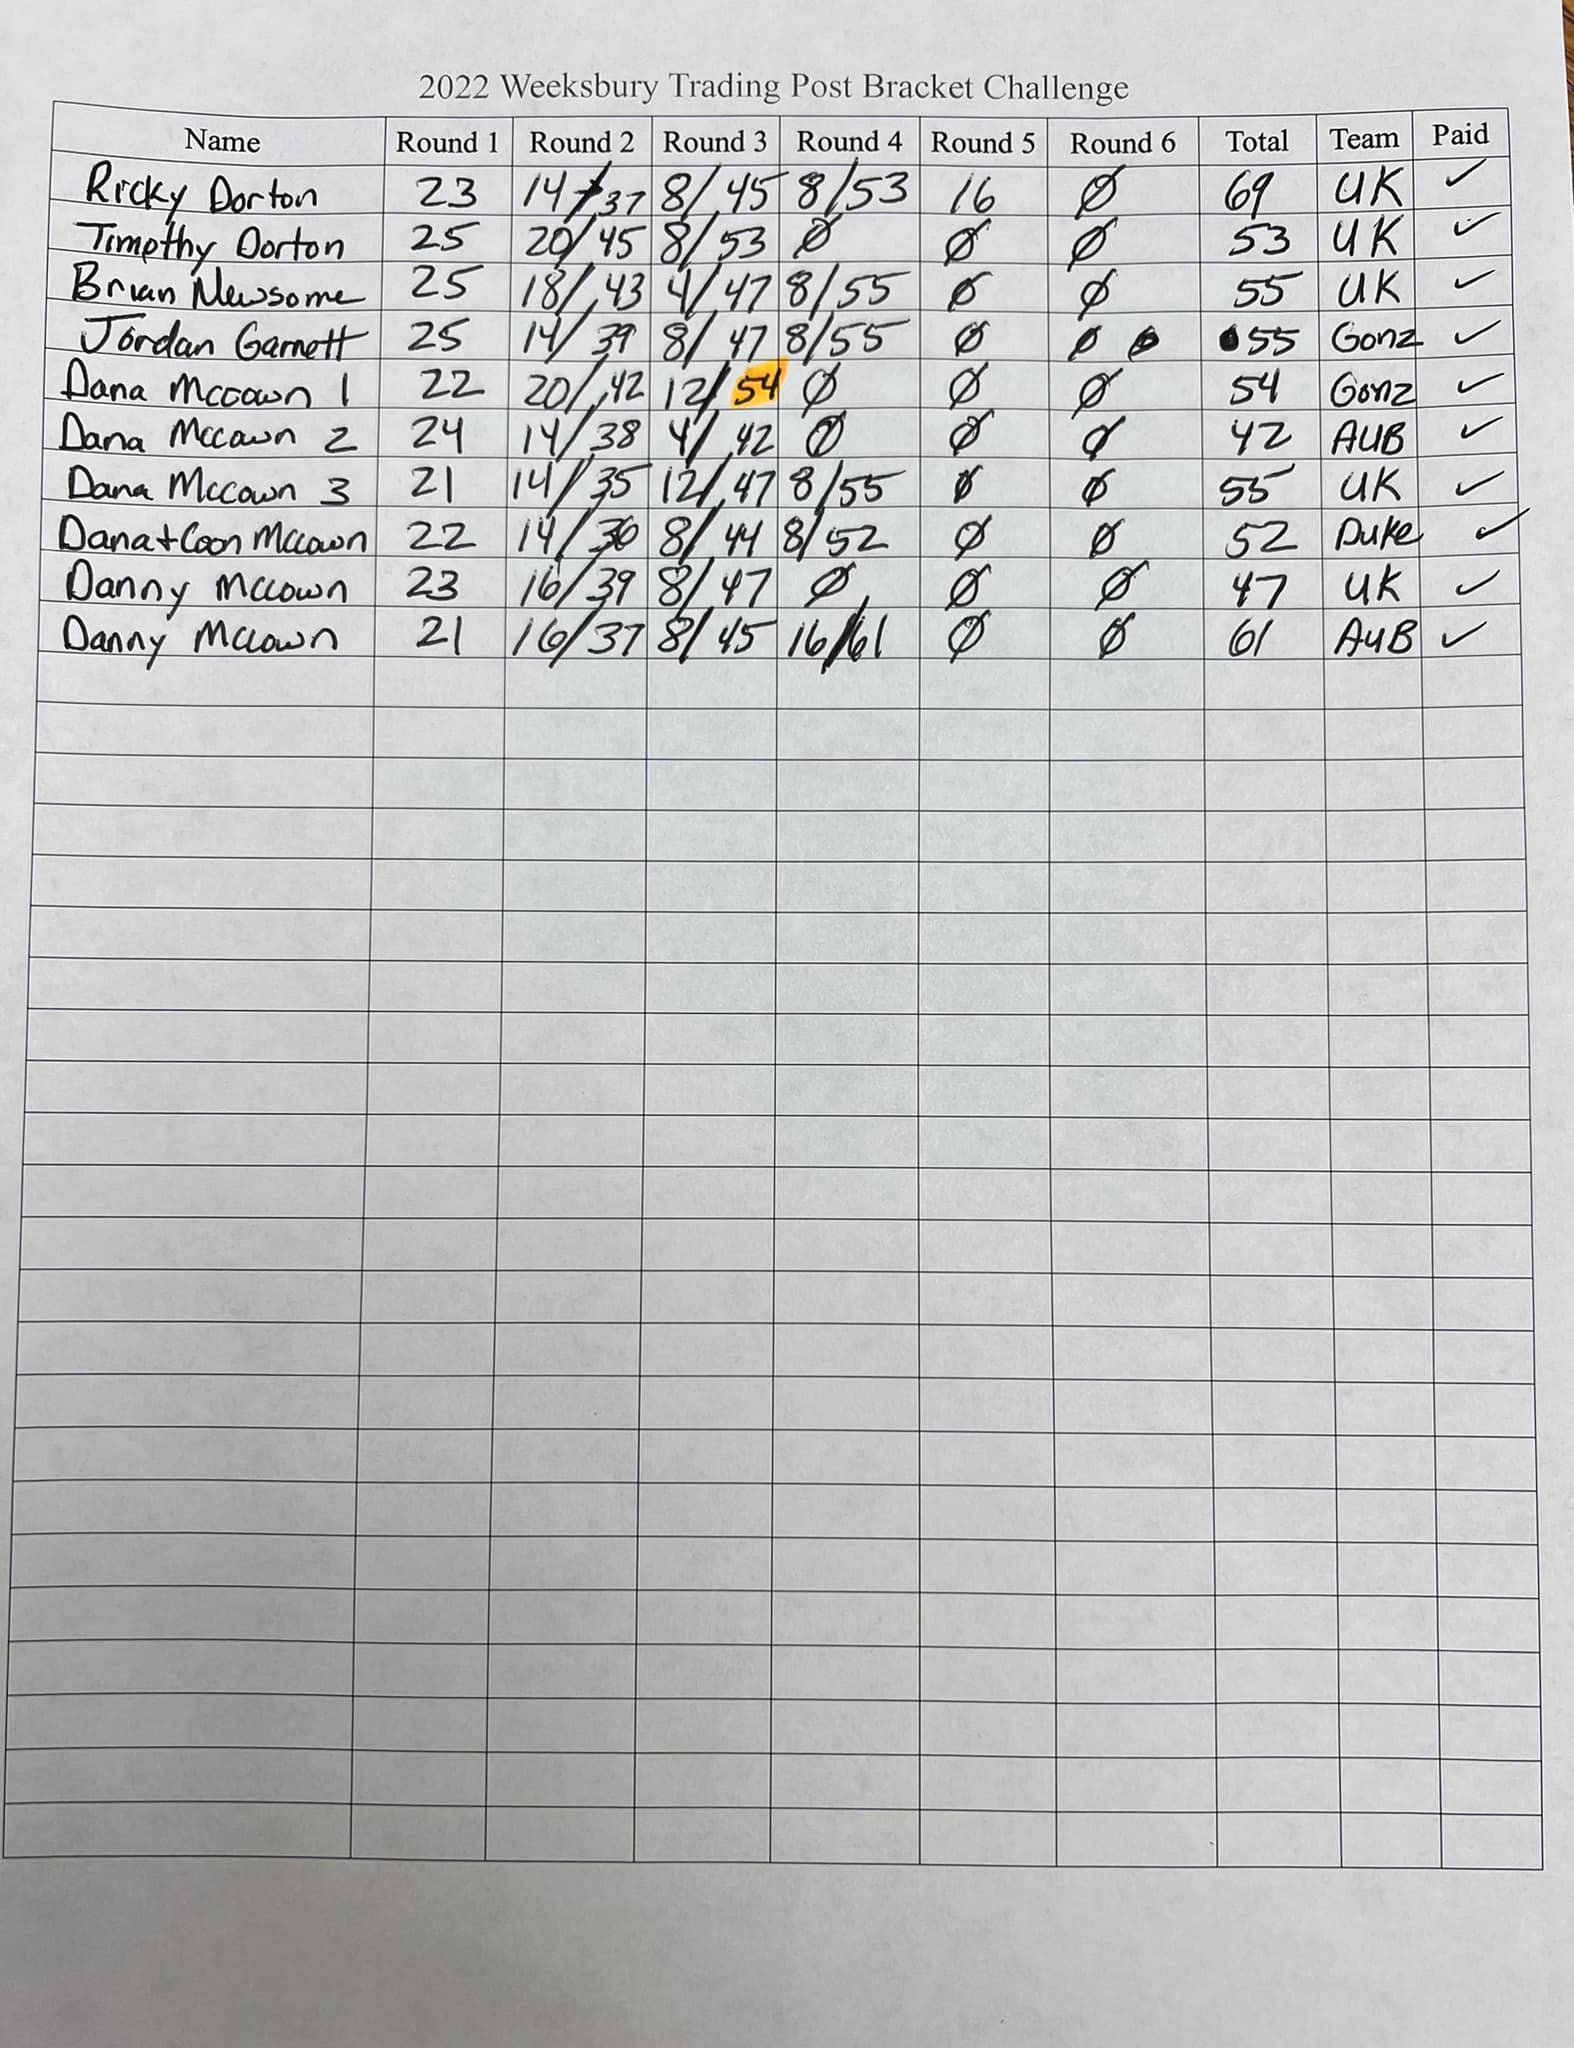 2022 Weeksbury Trading Post Bracket Challenge
Name Round 1 Round 2 Round 3 Round 4 Round 5 Round 6 Total Team Paid
Ricky Dorton 23 14/37 8/45 8/53 16 Ø 69 UK ✓
Timothy Dorton 25 20/45 8/53 Ø Ø Ø 53 UK ✓
Brian Newsome 25 18/43 4/47 8/55 Ø Ø 55 UK ✓
Jordan Garnett 25 14/39 8/47 8/55 Ø Ø 55 Gonz ✓
Dana Mccown 1 22 20/42 12/54 Ø Ø Ø 54 Gonz ✓
Dana Mccown 2 24 14/38 4/42 Ø Ø Ø 42 AUB ✓
Dana Mccown 3 21 14/35 12/47 8/55 Ø Ø 55 UK ✓
Dana+Coon Mccown 22 14/36 8/44 8/52 Ø Ø 52 Duke ✓
Danny Mccown 23 16/39 8/47 Ø Ø Ø 47 UK ✓
Danny Mccown 21 16/37 8/45 16/61 Ø Ø 61 AUB ✓